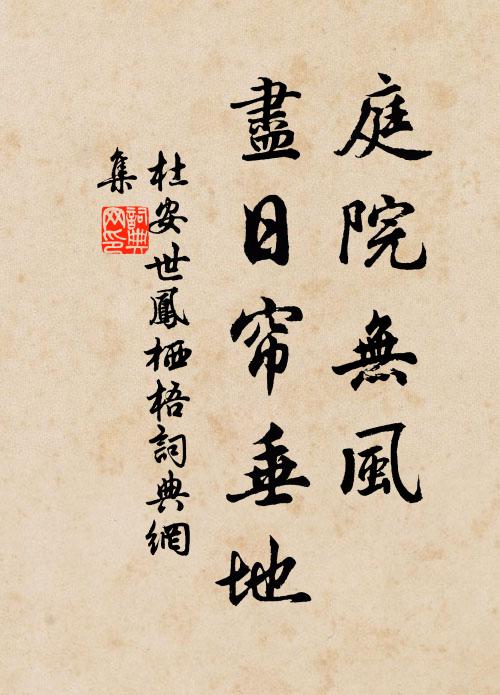 庭院無風
盡日帘垂地
杜安世鳳栖梧詞典網
集
詞典網印